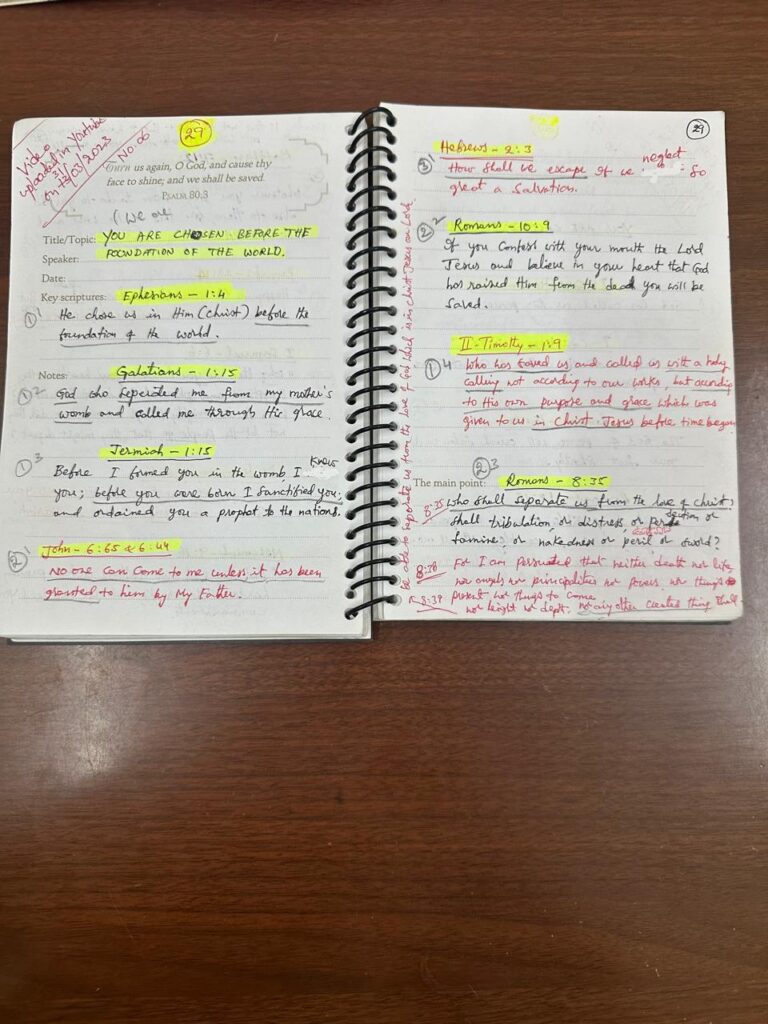 Video
uploaded in Youtube
on 31/03/2023
No. 06
29
TURN us again, O God, and cause thy
face to shine; and we shall be saved.
PSALM 80:3
(We are
Title/Topic: YOU ARE CHOSEN BEFORE THE
Speaker: FOUNDATION OF THE WORLD.
Date:
Key scriptures: Ephesians - 1:4
1) 1 He chose us in Him (Christ) before the
foundation of the world.
Notes: Galatians - 1:15
1) 2 God who seperated me from my mother's
womb and called me through His grace.
Jermiah - 1:15
1) 3 Before I formed you in the womb I knew
you; before you were born I sanctified you;
and ordained you a prophet to the nations.
2) 1 John - 6:65 & 6:44
No one can come to me unless it has been
granted to him by My Father.
29
Hebrews - 2:3
3) 1 How shall we escape if we neglect so
great a Salvation.
Romans - 10:9
2) 2 If you confess with your mouth the Lord
Jesus and believe in your heart that God
has raised Him from the dead you will be
saved.
II - Timothy - 1:9
1) 4 Who has saved us and called us with a holy
calling not according to our works, but according
to His own purpose and grace which was
given to us in Christ Jesus before time began
2) 3
The main point: Romans - 8:35
8:35 Who shall separate us from the love of Christ
shall tribulation or distress, or persecution or
famine, or nakedness or peril or sword?
8:38 For I am persuaded that neither death nor life,
nor angels nor principalities nor powers nor things
8:39 present nor things to come
nor height nor depth. nor any other created thing shall
be able to separate us from the love of God which is in Christ Jesus our Lord.